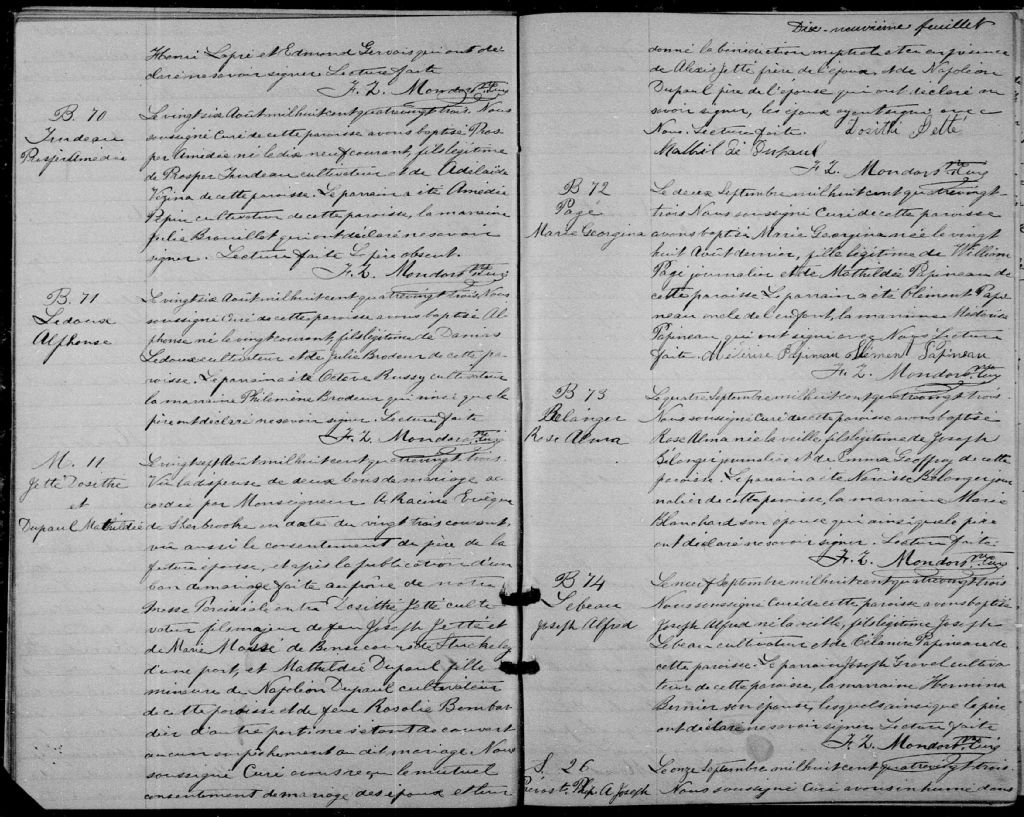 Henri Lapré et Edmond Gervais qui ont dé-
claré ne savoir signer. Lecture faite
F. Z. Mondor Ptre Curé
B. 70
Trudeau
Prosper Amédée
Le vingt six Août mil huit cent quatre vingt trois. Nous
soussigné Curé de cette paroisse avons baptisé Pros-
per Amédée né le dix neuf courant, fils légitime
de Prosper Trudeau cultivateur et de Adelaïde
Vézina de cette paroisse. Le parrain a été Amédée
Pepin cultivateur de cette paroisse, la marraine
Julie Brouillet qui ont déclaré ne savoir
signer. Lecture faite Le père absent.
F. Z. Mondor Ptre Curé
B. 71
Ledoux
Alphonse
Le vingt six Août mil huit cent quatre vingt trois. Nous
soussigné Curé de cette paroisse avons baptisé Al-
phonse né le vingt courant, fils légitime de Damius
Ledoux cultivateur et de Julie Brodeur de cette pa-
roisse. Le parrain a été Octave Russy cultivateur
la marraine Philomène Brodeur qui ainsi que le
père ont déclaré ne savoir signer. Lecture faite
F. Z. Mondor Ptre Curé
M. 11
Jetté Dosithé
et
Dupaul Mathildée
Le vingt sept Août mil huit cent quatre vingt trois.
Vu la dispense de deux bans de mariage ac-
cordée par Monseigneur A. Racine Evêque
de Sherbrooke en date du vingt trois courant,
vu aussi le consentement du père de la
future épouse, et après la publication d'un
ban de mariage faite au prône de notre
messe Paroissiale entre Dosithé Jetté culti-
vateur fils majeur de feu Joseph Jetté et
de Marie Massé de Bonsecours de Stuckeley
d'une part, et Mathildée Dupaul fille
mineure de Napoléon Dupaul cultivateur
de cette paroisse et de feue Rosalie Bombar-
dier d'autre part: ne s'étant découvert
aucun empêchement au dit mariage Nous
soussigné Curé avons reçu le mutuel
consentement de mariage des époux et leur
Dix-neuvième feuillet
donné la bénédiction nuptiale et en présence
de Alexis Jetté frère de l'époux et de Napoléon
Dupaul père de l'épouse qui ont déclaré ne
savoir signer, les époux ayant signé avec
Nous. Lecture faite. Dosithé Jetté
Mathildé Dupaul
F. Z. Mondor Ptre Curé
B 72
Pagé
Marie Georgina
Le deux Septembre mil huit cent quatre vingt
trois Nous soussigné Curé de cette paroisse
avons baptisé Marie Georgina née le vingt
huit Août dernier, fille légitime de William
Pagé journalier et de Mathildée Papineau de
cette paroisse. Le parrain a été Clément Papi-
neau oncle de l'enfant, la marraine Médérise
Papineau qui ont signé avec Nous. Lecture
faite. Papineau Clement Papineau
F. Z. Mondor Ptre Curé
B 73
Belanger
Rose Alma
Le quatre Septembre mil huit cent quatre vingt trois.
Nous soussigné Curé de cette paroisse avons baptisé
Rose Alma née la veille, fils légitime de Joseph
Bélanger journalier et de Emma Geoffroy de cette
paroisse. Le parrain a été Narcisse Bélanger jour-
nalier de cette paroisse, la marraine Marie
Blanchard son épouse qui ainsi que le père
ont déclaré ne savoir signer. Lecture faite.
F. Z. Mondor Ptre Curé
B 74
Lebeau
Joseph Alfred
Le neuf Septembre mil huit cent quatre vingt trois
Nous soussigné Curé de cette paroisse avons baptisé
Joseph Alfred né la veille, fils légitime Joseph
Lebeau cultivateur et de Célanire Papineau de
cette paroisse. Le parrain Joseph Gravel cultiva-
teur de cette paroisse, la marraine Hermina
Bernier son épouse, lesquels ainsi que le père
ont déclaré ne savoir signer. Lecture faite
F. Z. Mondor Ptre Curé
S. 26
Phlp. A. Joseph
Le onze Septembre mil huit cent quatre vingt trois.
Nous soussigné Curé avons inhumé dans